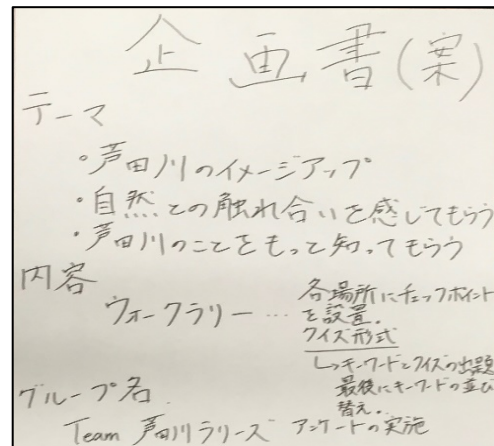 企画書(案)
テーマ
・芦田川のイメージアップ
・自然との触れ合いを感じてもらう
・芦田川のことをもっと知ってもらう
内容
ウォークラリー… 各場所にチェックポイント
を設置。
クイズ形式
↳キーワードとクイズの出題
最後にキーワードの並び
替え。
グループ名
Team 芦田川ラリーズ アンケートの実施